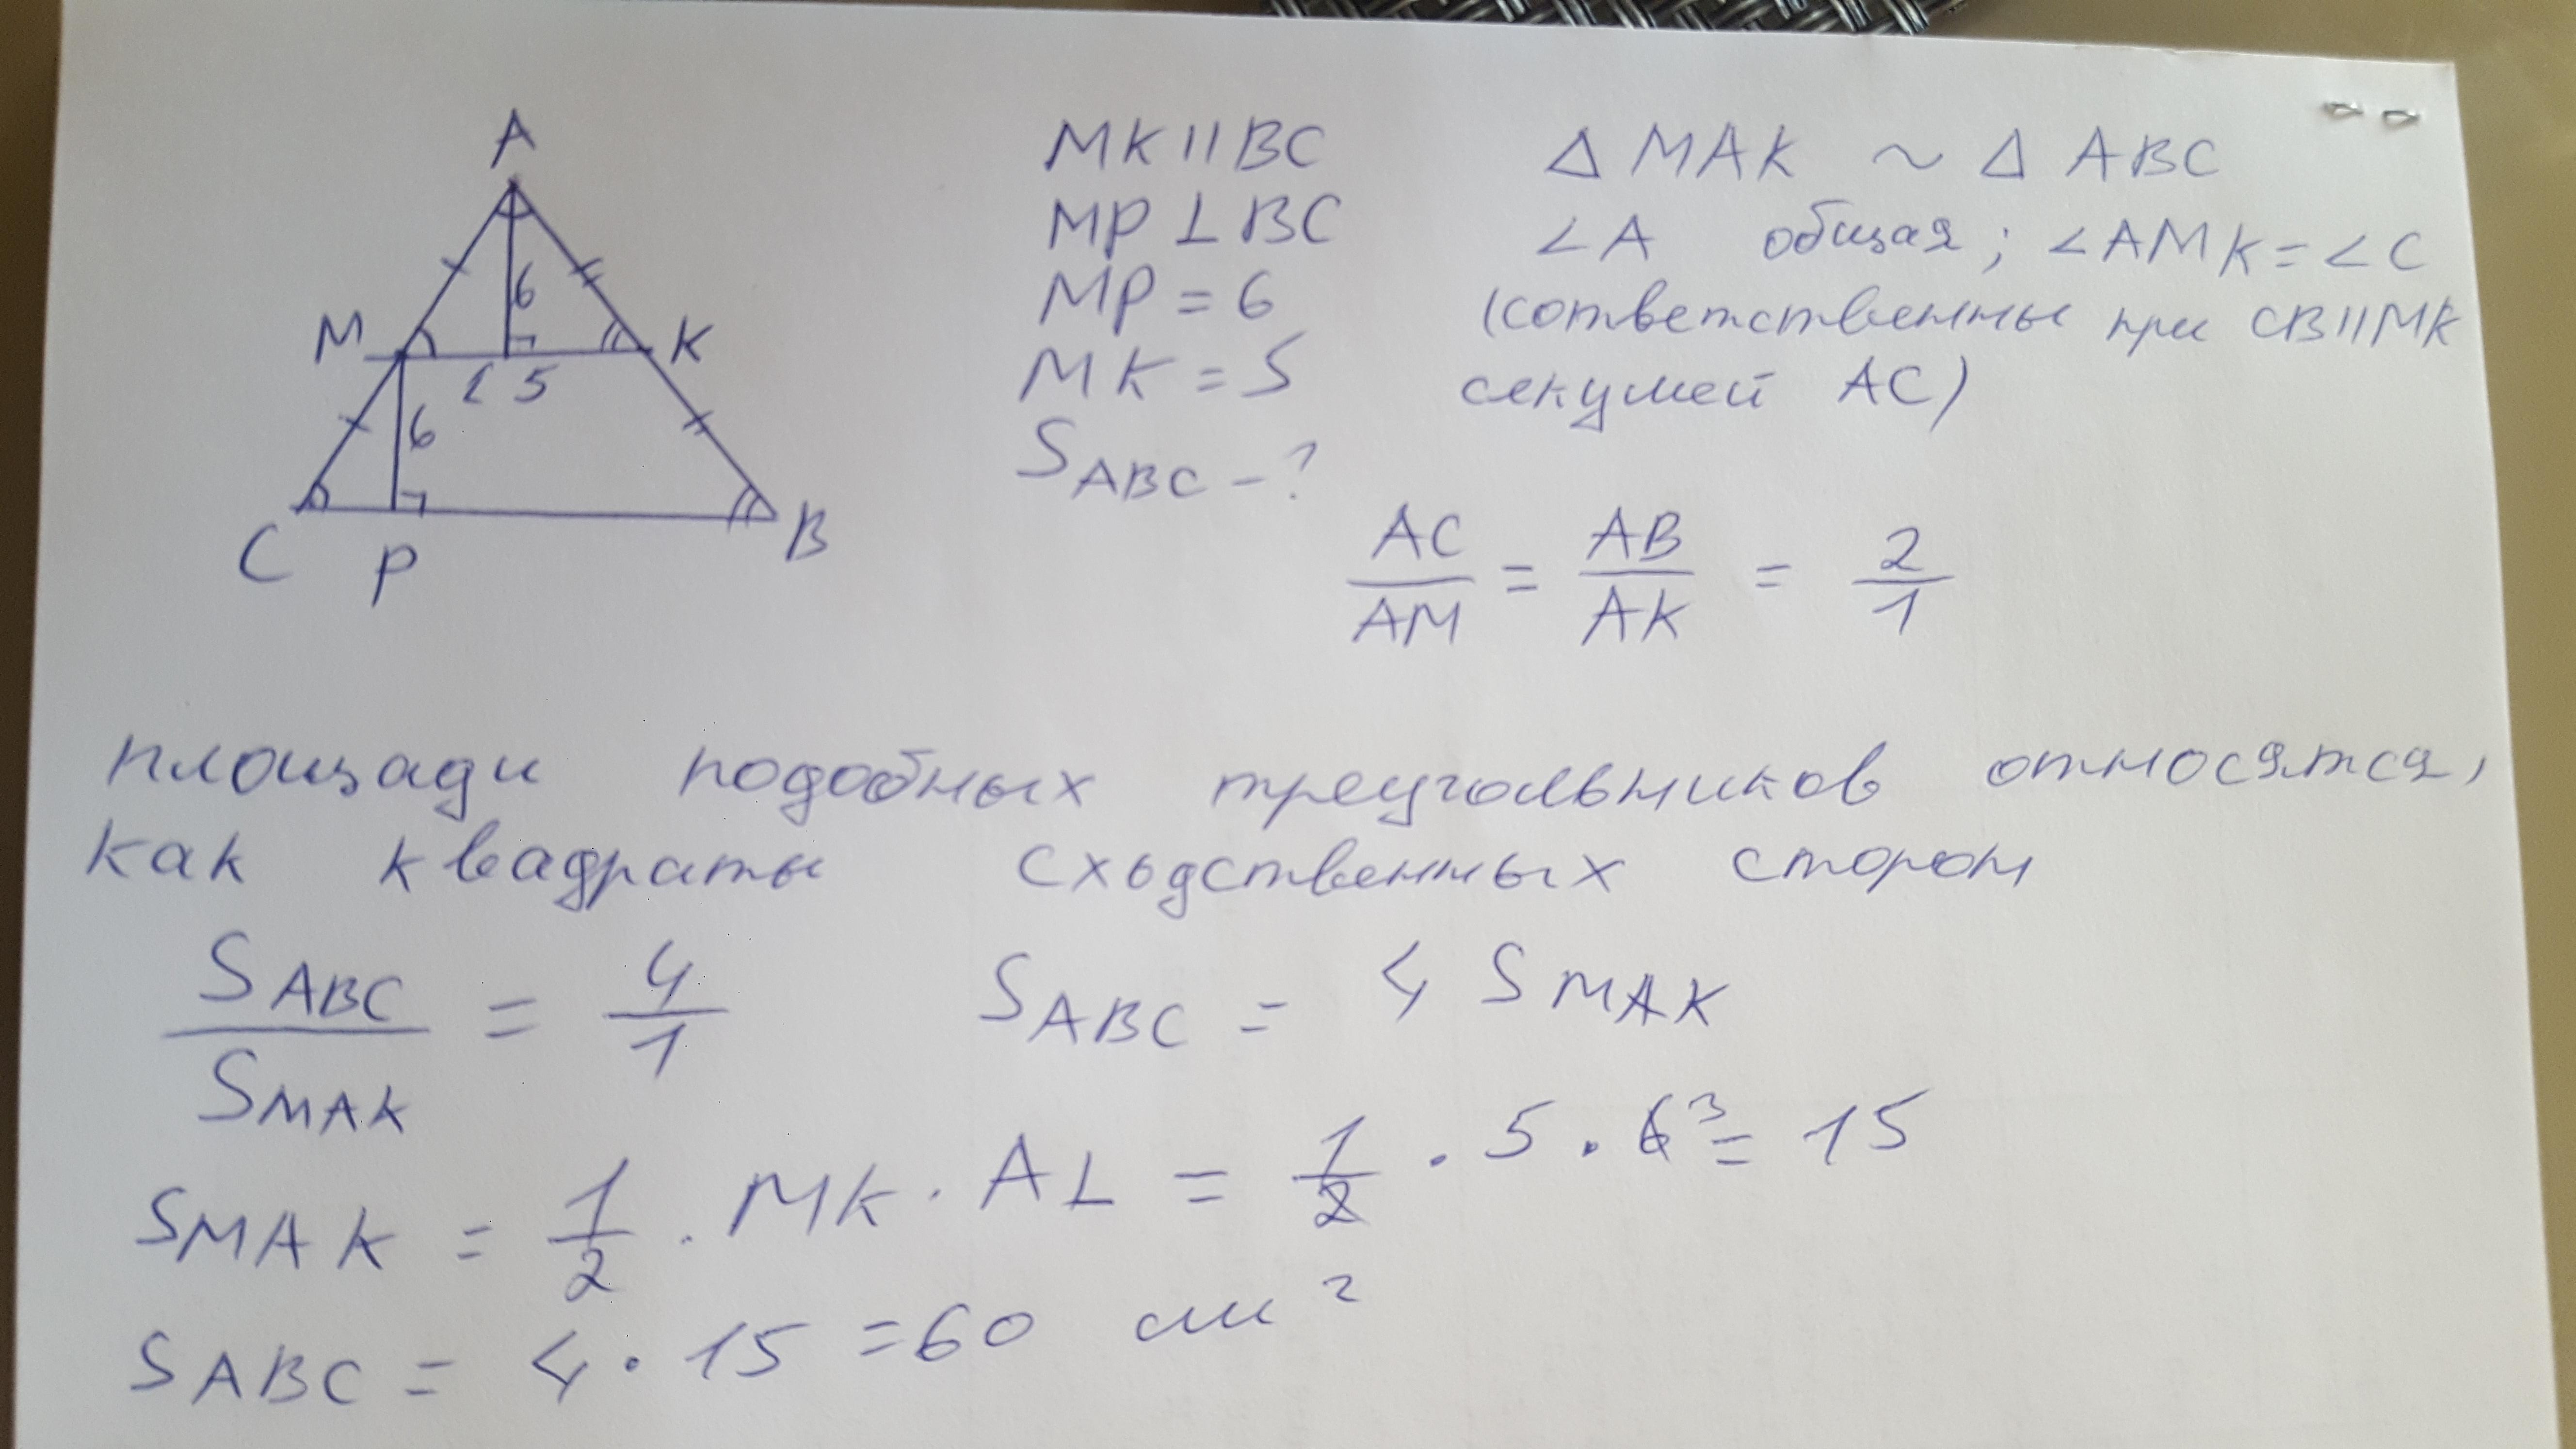 A
M
K
6
L 5
6
C
P
B
MK || BC
MP ⊥ BC
MP = 6
MK = 5
S ABC - ?
Δ MAK ~ Δ ABC
∠A общая; ∠AMK = ∠C
(сответственны при CB || MK
секущей AC)
AC/AM = AB/AK = 2/1
площади подобных треугольников относятся,
как квадраты сходственных сторон
S ABC / S MAK = 4/1
S ABC = 4 S MAK
S MAK = 1/2 · MK · AL = 1/2 · 5 · 6³ = 15
S ABC = 4 · 15 = 60 см²